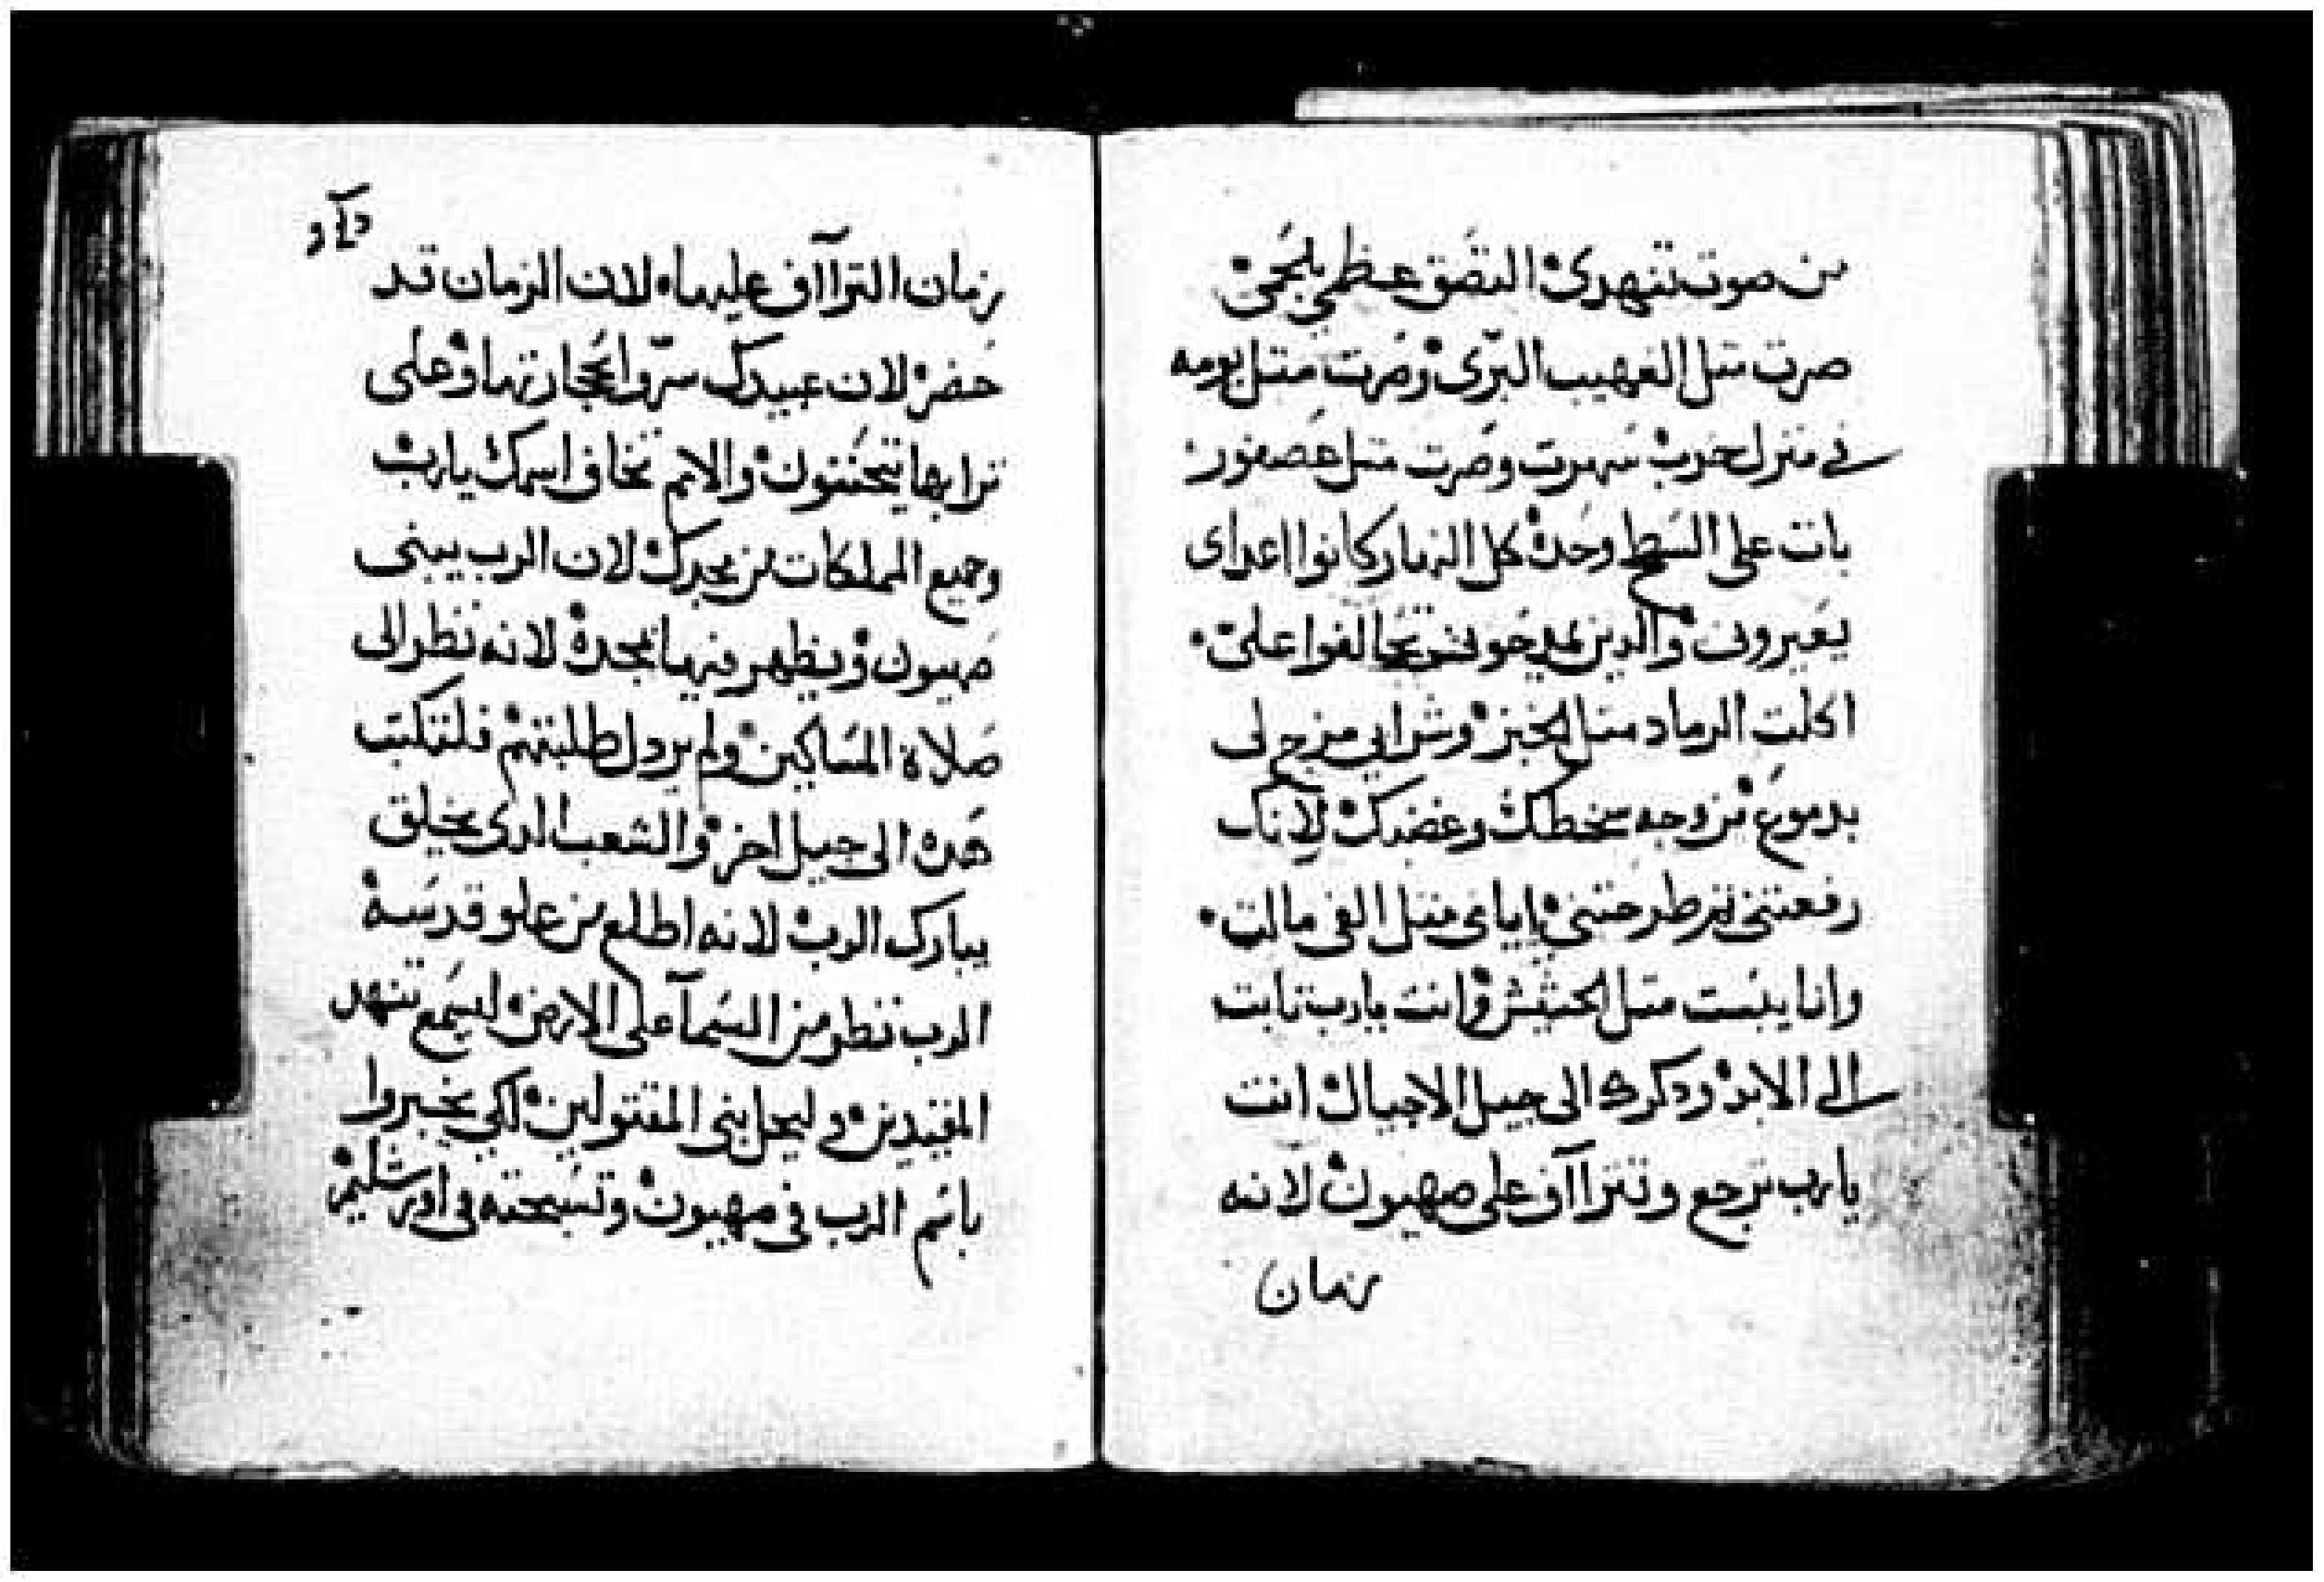 من صوت تنهدى التصق عظمي بلحمى
صرت متل الغهيب البرّى وصرت متل بومه
في منزل خرب سهرت وصرت متل عصفور
بات على السطح وحده كل النهار كانوا اعداى
يعيرونى والدين يمدحونى تحالفوا علىّ
اكلت الرماد متل الخبز وشرابي مزج لى
بدموع من وجه سخطك وغضبك لانك
رفعتنى طرحتنى اياى متل الفى مالت
وانا يبست متل الحشيش وانت يارب تابت
الى الابد ودكرك الى جيل الاجيال انت
يارب ترجع وتترااف على صهيون لانه
زمان
داود
زمان التراآف عليها لان الزمان قد
حضر لان عبيدك سرّوا بحجارتها وعلى
ترابها يتحننون والامم تخاف اسمك يارب
وجميع المملكات من مجدك لان الرب يبنى
صهيون ويظهر فيها بمجده لانه نظر الى
صلاة المساكين ولم يردل طلبتهم فلتكتب
هده الى جيل اخر والشعب الدى يخلق
يبارك الرب لانه اطلع من علو قدسه
الرب نظر من السمآ على الارض ليسمع تنهد
المقيدين وليحل بنى المقتولين لكي يخبروا
باسم الرب في صهيون وتسبحته في اورشليم